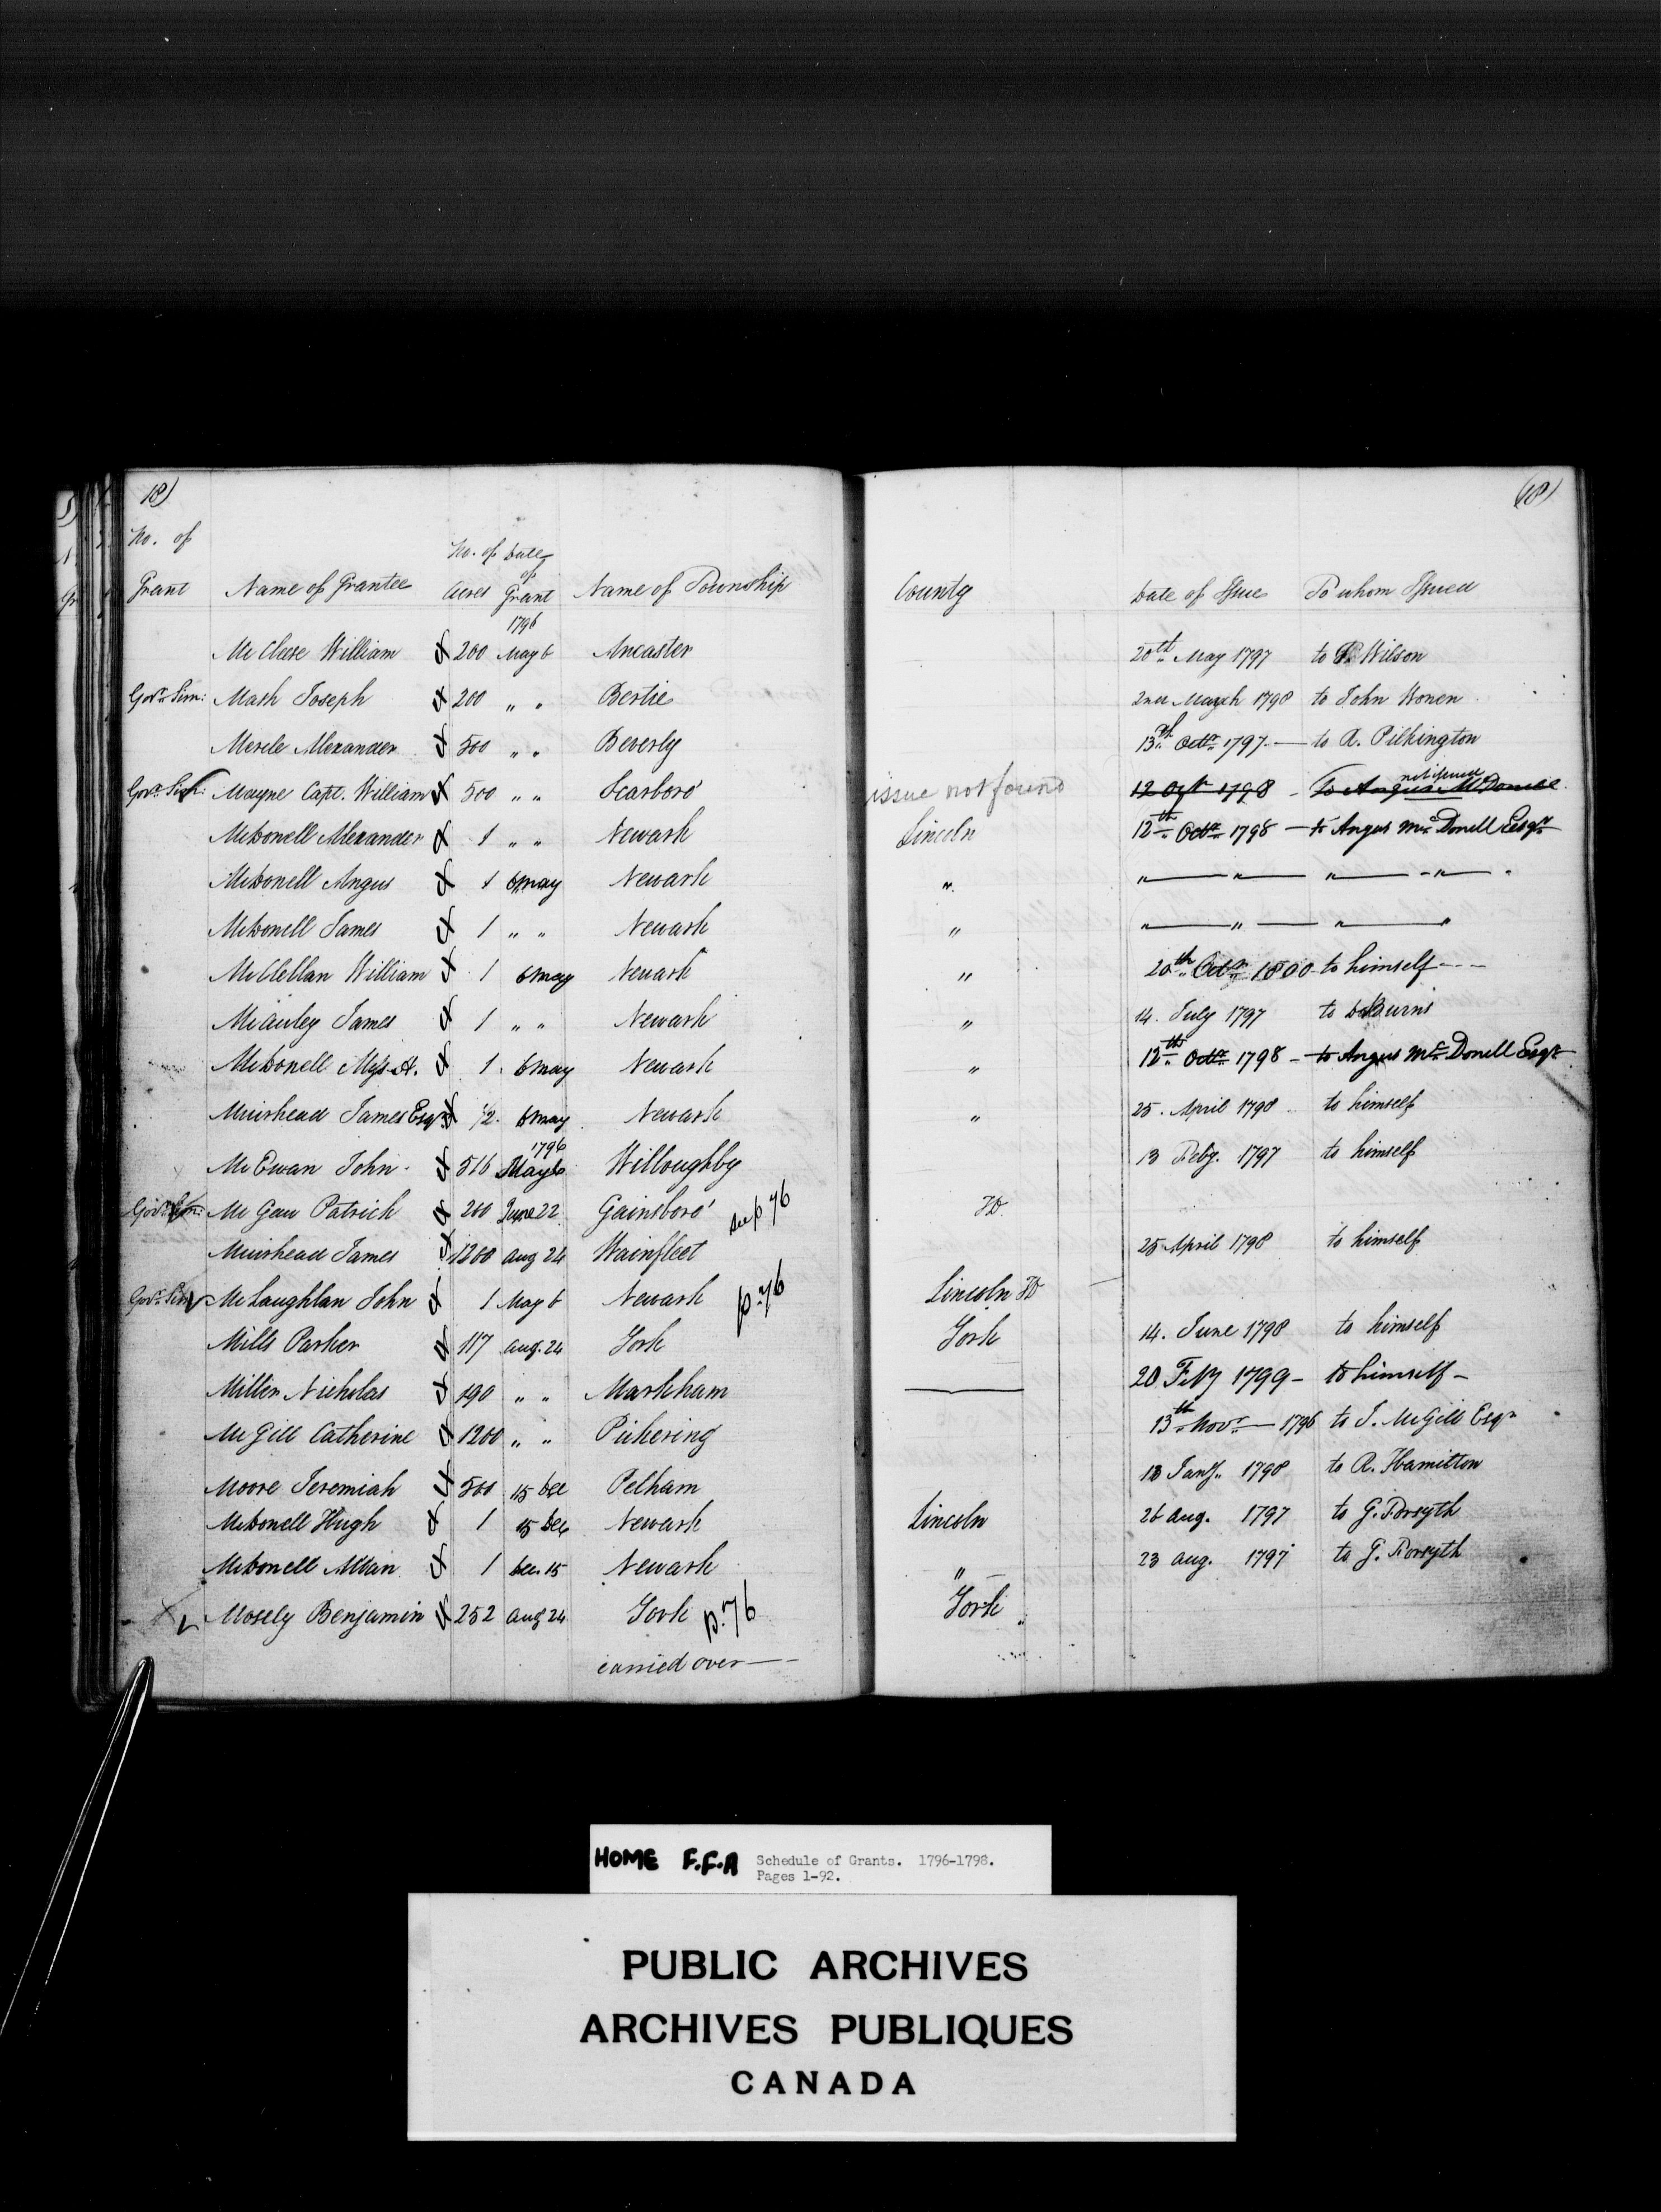 18) (18)
No. of
Grant Name of Grantee No. of Acres Date of Grant Name of Township County Date of Issue To whom Issued
1796
McClure William 200 May 6 Ancaster 20th May 1797 to Wilson
Govr. Sim: Mash Joseph 200 " " Bertie 2nd March 1798 to John
Alexander 500 " " Beverly 13th Octr. 1797 — to R. Pilkington
Govr. Sim: Mayne Capt. William 500 " " Scarboro' issue not found 12 Octr 1798 - To Angus McDonell not issued
McDonell Alexander 1 " " Newark Lincoln 12th Octr. 1798 — to Angus McDonell Esqr.
McDonell Angus 1 6 May Newark " " — " — " — " —
McDonell James 1 " " Newark " " — " — " — "
McClellan William 1 6 May Newark " 20th Octr. 1800 to himself - - -
McAuley James 1 " " Newark " 14. July 1797 to D. Burns
McDonell A. 1 6 May Newark " 12th Octr. 1798 - to Angus McDonell Esqr.
Muirhead James Esqr. 1/2 6 May Newark " 25. April 1798 to himself
McEwan John 516 1796 May 6 Willoughby 13 Feby. 1797 to himself
Govr. Sim: McGaw Patrick 200 June 22 Gainsboro' see p 76
Muirhead James 1200 Aug 24 Wainfleet 25 April 1798 to himself
Govr. Sim McLaughlan John 1 May 6 Newark p. 76 Lincoln
Mills Parker 117 Aug. 24 York York 14. June 1798 to himself
Miller Nicholas 190 " " Markham — 20 Feby 1799 - to himself -
McGill Catherine 1200 " " Pickering 13th Novr. — 1796 to J. McGill Esqr.
Moore Jeremiah 500 15 Dec Pelham 13 Jany. 1798 to R. Hamilton
McDonell Hugh 1 15 Dec Newark Lincoln 26 Aug. 1797 to G. Forsyth
McDonell Allan 1 Dec. 15 Newark " 23 Aug. 1797 to G. Forsyth
Mosely Benjamin 252 Aug 24 York p. 76 York
carried over —
HOME F.F.A Schedule of Grants. 1796-1798.
Pages 1-92.
PUBLIC ARCHIVES
ARCHIVES PUBLIQUES
CANADA